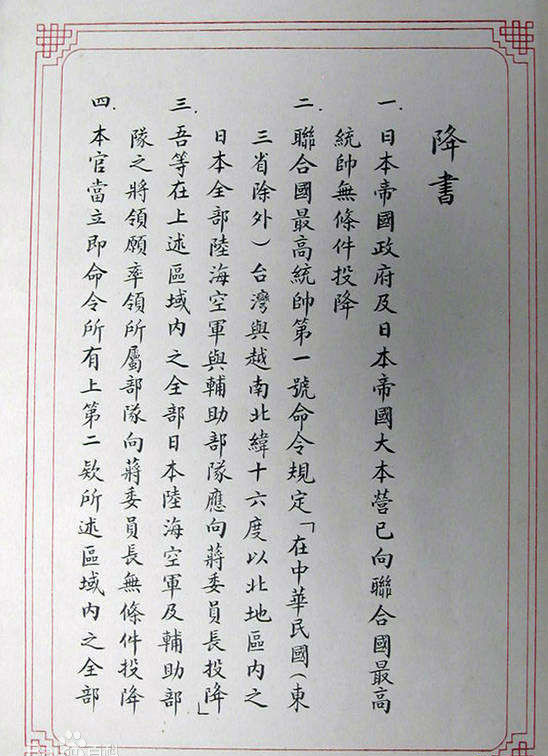 降書
一.日本帝國政府及日本帝國大本營已向聯合國最高
統帥無條件投降
二.聯合國最高統帥第一號命令規定「在中華民國(東
三省除外)台灣與越南北緯十六度以北地區內之
日本全部陸海空軍與輔助部隊應向蔣委員長投降」
三.吾等在上述區域內之全部日本陸海空軍及輔助部
隊之將領願率領所屬部隊向蔣委員長無條件投降
四.本官當立即命令所有上第二欵所述區域內之全部
百科